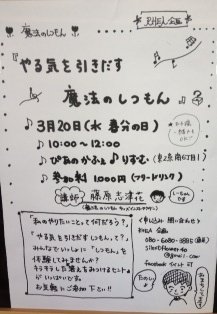 魔法のしつもん
RHEA 企画
やる気を引きだす
魔法のしつもん
3月20日(水 春分の日)
10:00〜12:00
ぴあのかふぇ♪りずむ
参加料 1,000円 (フリードリンク)
講師 藤原志津花
「私のやりたいことって何だろう?」
「やる気を引きだすしつもん」って?
みんなでいっしょに「しつもん」を
体験してみませんか?
キラキラした
ヒント
がいっぱいです。
お気軽にご参加下さい!!
<申し込み・問い合わせ>
RHEA 企画
080-6080-8885
gmail.com
facebook イベント
たのしいよ